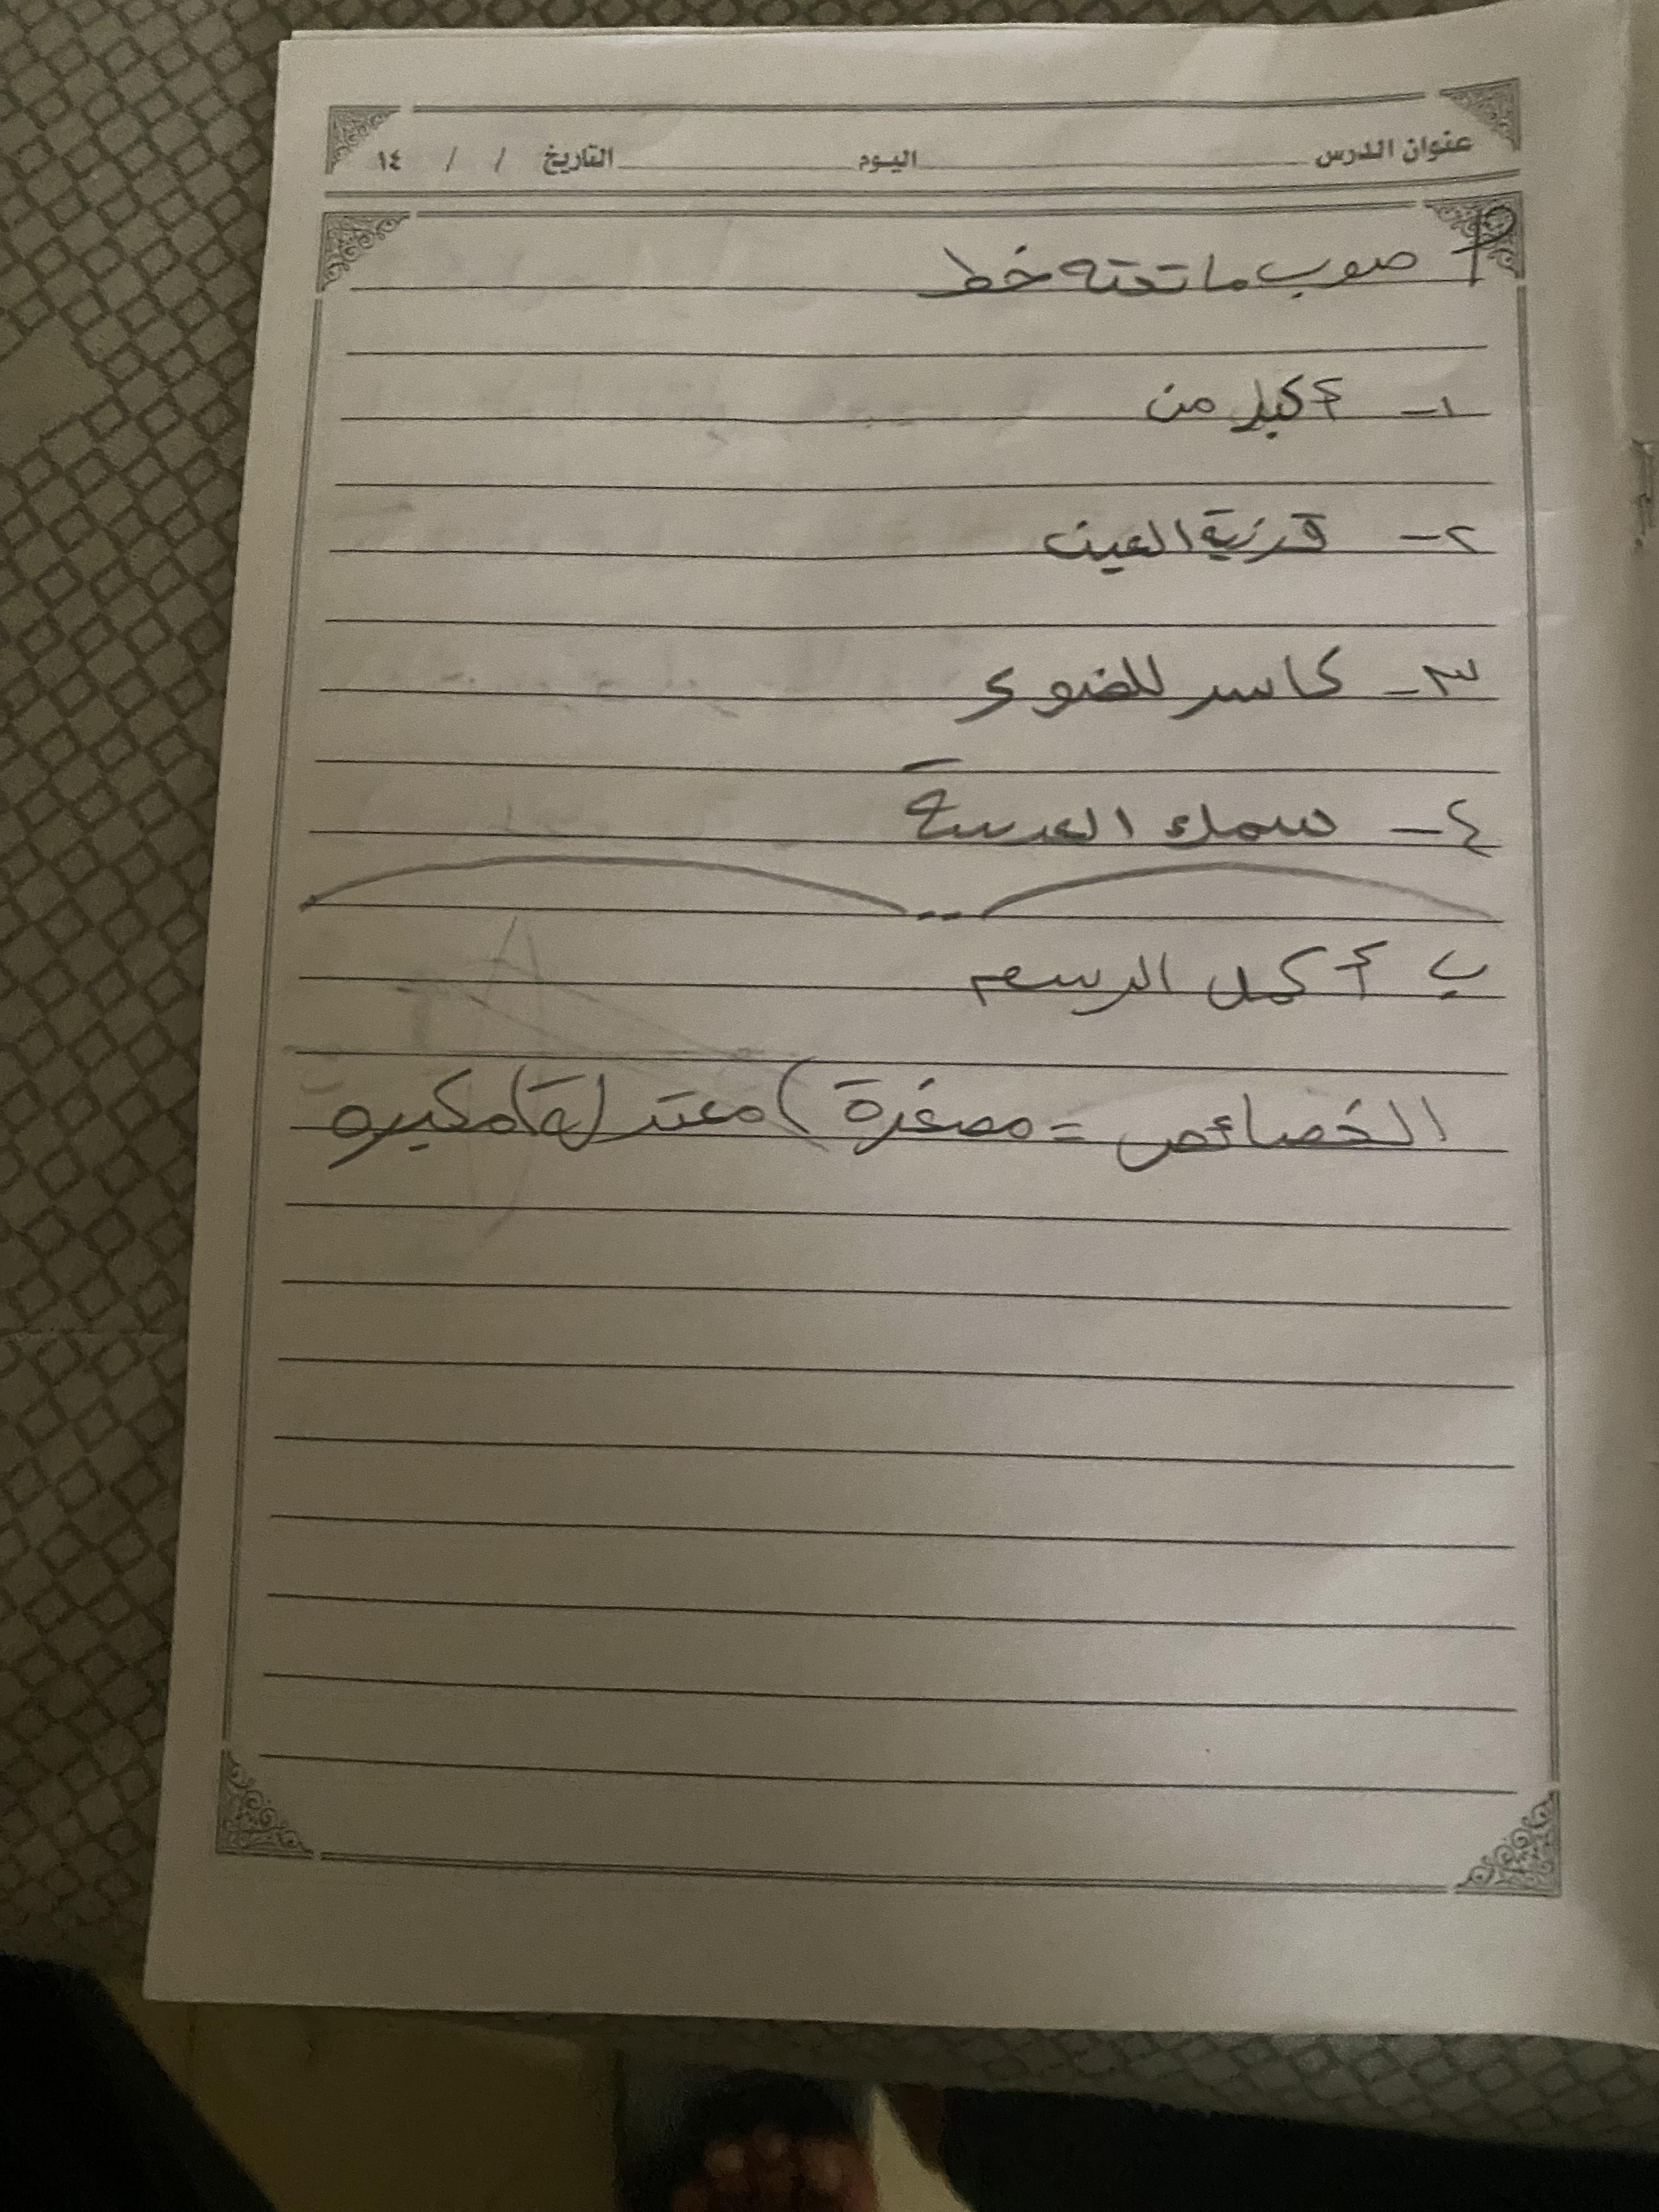 عنوان الدرس اليوم التاريخ / / ١٤
أ صوب ما تحته خط
١- أكبر من
٢- قرنية العين
٣- كاسر للضوء
٤- سمك العدسة
ب أكمل الرسم
الخصائص = مصغرة ) معتدلة ) مكبره